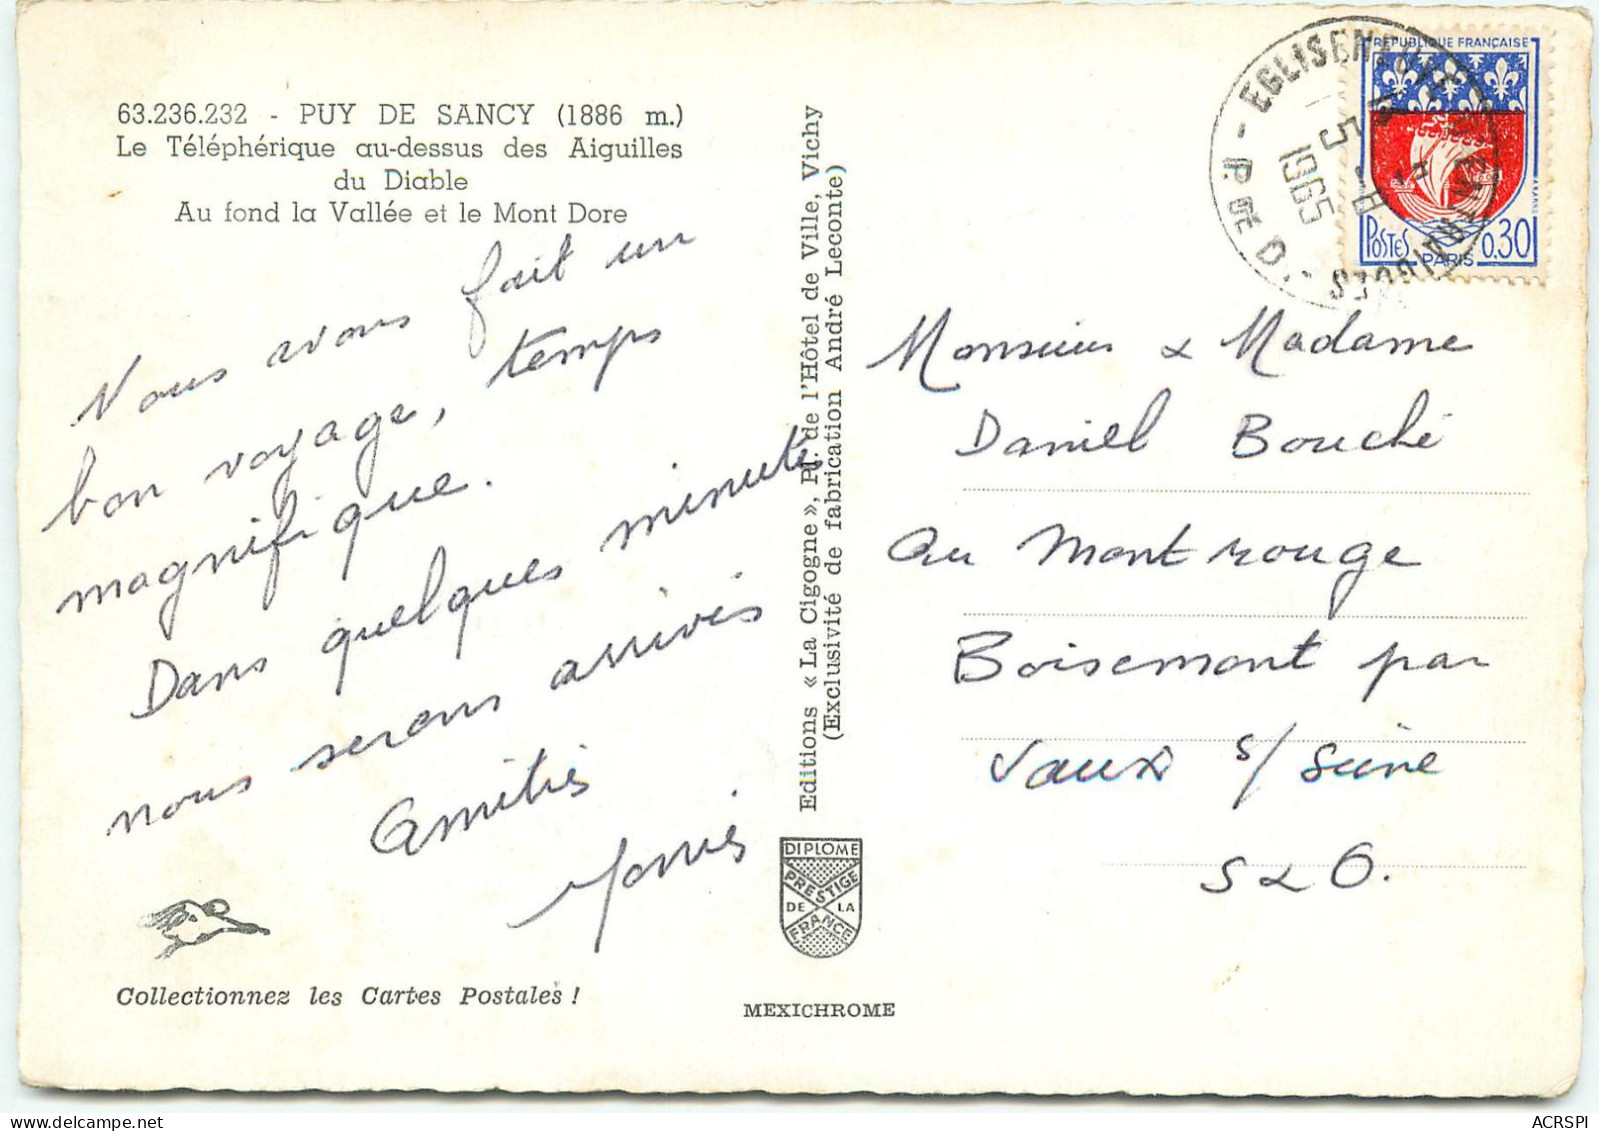 63.236.232 - PUY DE SANCY (1886 m.)
Le Téléphérique au-dessus des Aiguilles
du Diable
Au fond la Vallée et le Mont Dore
Nous avons fait un
bon voyage, temps
magnifique.
Dans quelques minutes
nous serons arrivés
Amitiés
Collectionnez les Cartes Postales !
Editions « La Cigogne », Pl. de l'Hôtel de Ville, Vichy
(Exclusivité de fabrication André Leconte)
DIPLOME
PRESTIGE
DE LA
FRANCE
MEXICHROME
1965
P. DE D.
RÉPUBLIQUE FRANÇAISE
POSTES 0,30
PARIS
Monsieur & Madame
Daniel Bouché
au Montrouge
Boisemont par
Vaux s/ Seine
S & O.
ACRSPI